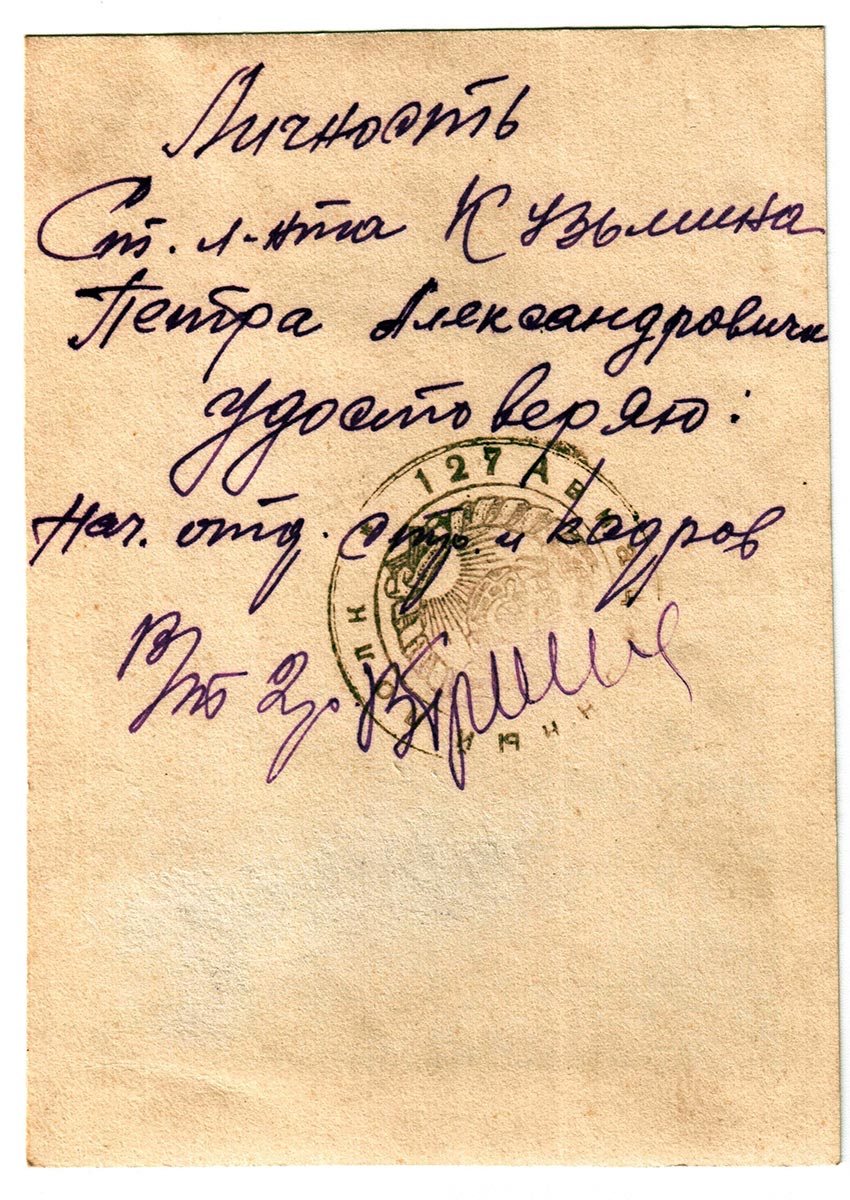 Личность
Ст. л-нта Кузьмина
Петра Александровича
удостоверяю:
Нач. отд. стр. и кадров
127 Ави
полк